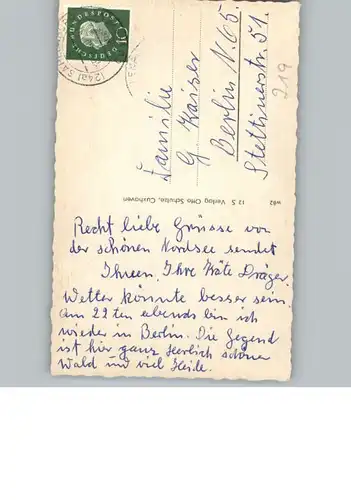 DEUTSCHE BUNDESPOST
10
(24a) SAHL
Familie
G. Kaiser
Berlin N. 65.
Stettinerstr. 51.
219
w82 12 S Verlag Otto Schulze, Cuxhaven
Recht liebe Grüsse von
der schönen Nordsee sendet
Ihnen, Ihre Käte Dräger.
Wetter könnte besser sein.
am 22ten abends bin ich
wieder in Berlin. Die Gegend
ist hier ganz herrlich schöner
Wald und viel Heide.